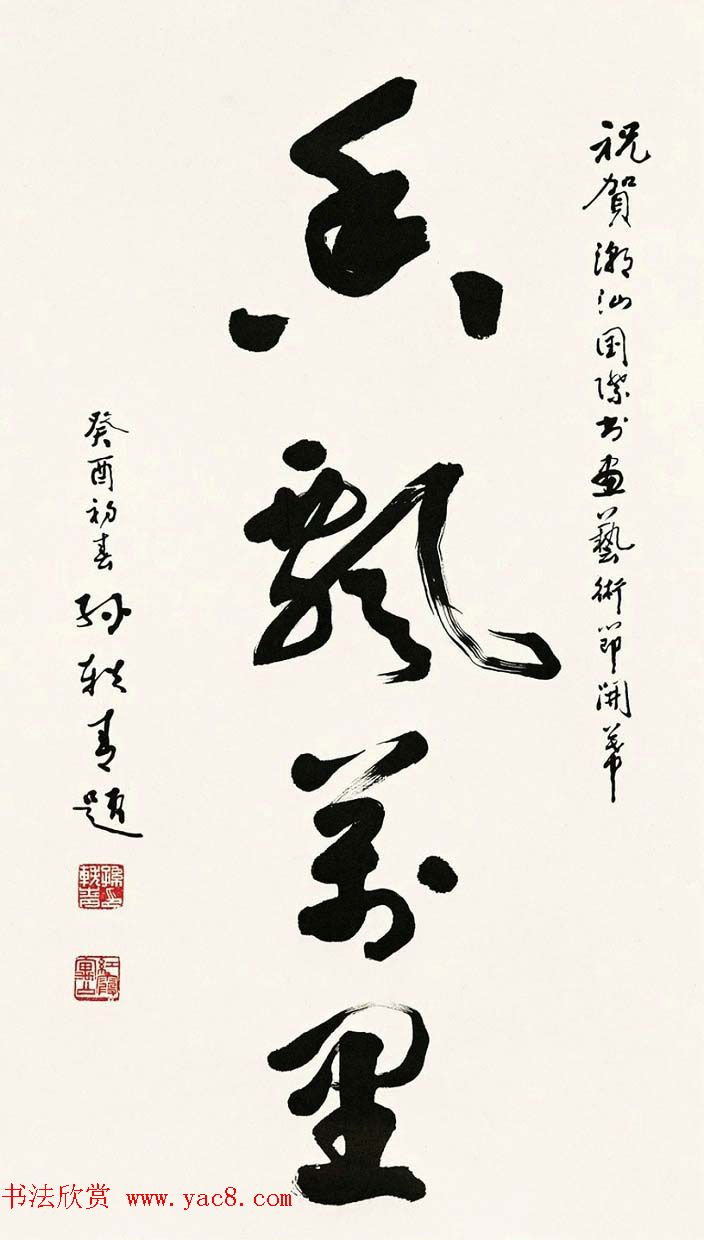 祝賀潮汕国際书画藝術節開幕
香飄萬里
癸酉初春 孙轶青題
书法欣赏 www.yac8.com